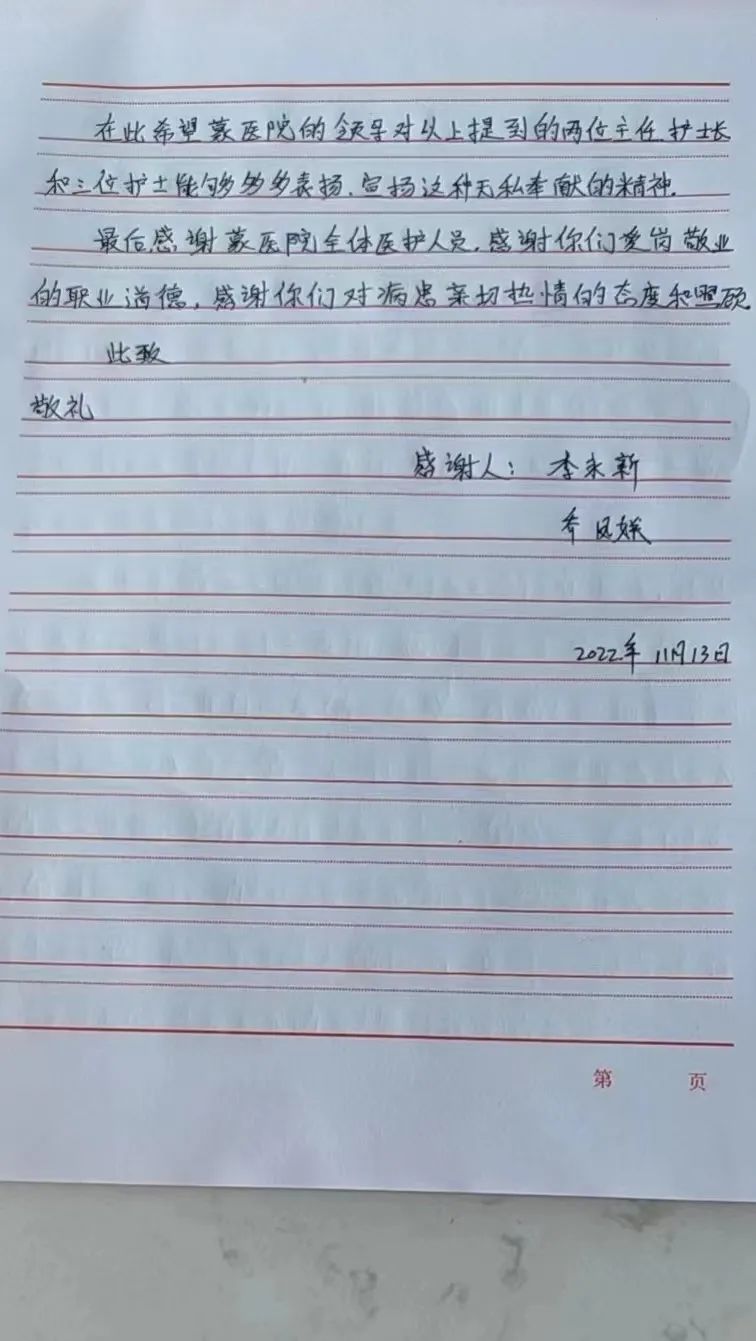 在此希望蒙医院的领导对以上提到的两位主任护士长
和三位护士能够多多多表扬、宣扬这种无私奉献的精神.
最后感谢蒙医院全体医护人员.感谢你们爱岗敬业
的职业道德，感谢你们对病患亲切热情的态度和照顾
此致
敬礼
感谢人：李永新
乔凤娥
2022年11月13日
第 页